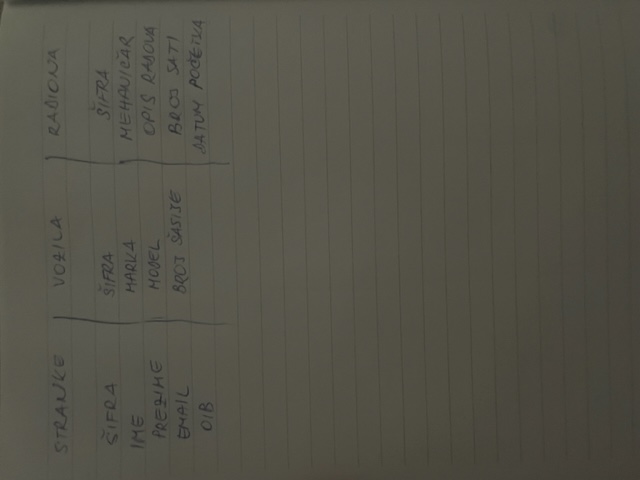 STRANKE VOZILA RADIONA
ŠIFRA ŠIFRA ŠIFRA
IME MARKA MEHANIČAR
PREZIME MODEL OPIS RADOVA
EMAIL BROJ ŠASIJE BROJ SATI
OIB DATUM POČETKA